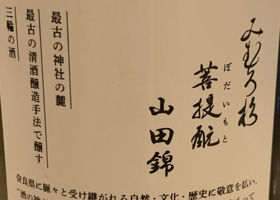 みむろ杉
ぼだいもと
菩提酛
山田錦
最古の神社の麓
最古の清酒醸造手法で醸す
三輪の酒
奈良県に脈々と受け継がれる自然・文化・歴史に敬意を払い、